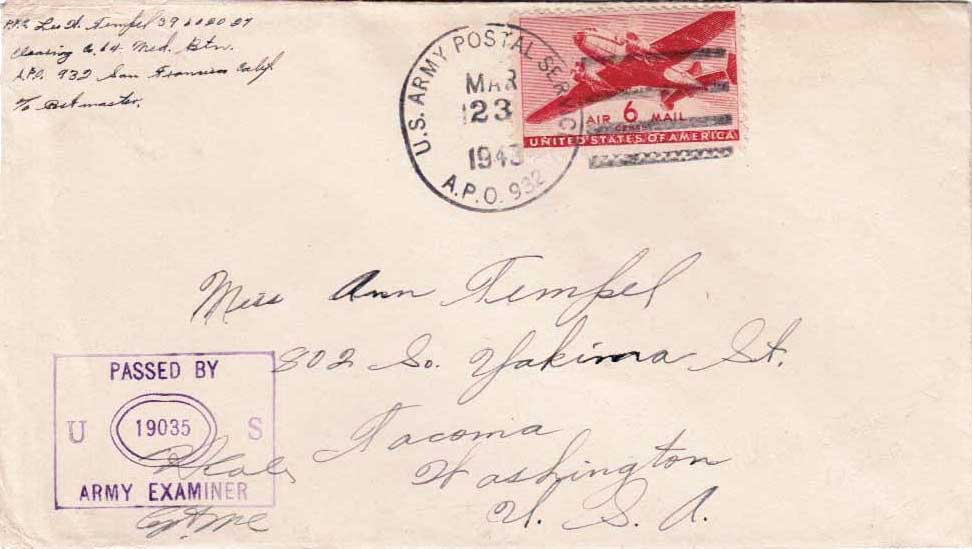 Pvt. Leo H. Tempel
Clearing Co. 64. Med. Btn.
A.P.O. 932 San Francisco Calif
c/o Postmaster.
U.S. ARMY POSTAL SERVICE
MAR
23
1943
A.P.O. 932
AIR 6 MAIL
CENTS
UNITED STATES OF AMERICA
Miss Ann Tempel
802 So. Yakima St.
Tacoma
Washington
U. S. A.
PASSED BY
U 19035 S
ARMY EXAMINER